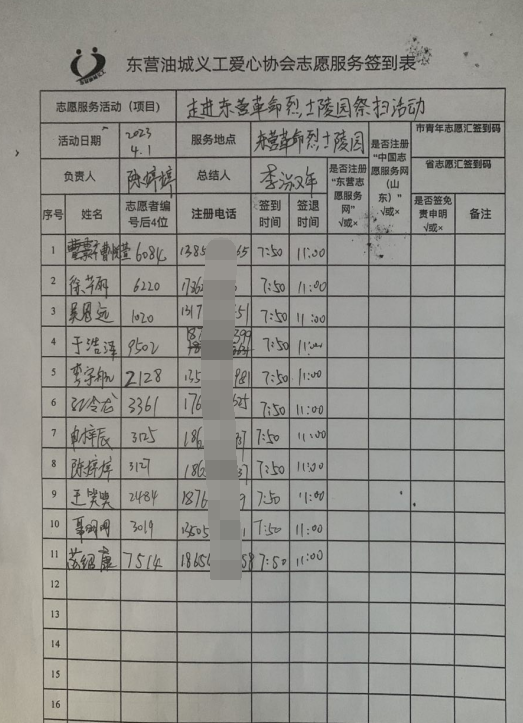 东营油城义工爱心协会志愿服务签到表
志愿服务活动（项目） 走进东营革命烈士陵园祭扫活动
活动日期 2023 4.1 服务地点 东营革命烈士陵园 是否注册“中国志愿服务网（山东）”√或× 市青年志愿汇签到码
负责人 陈婷婷 总结人 李汝年 是否注册“东营志愿服务网”√或× 省志愿汇签到码
序号 姓名 志愿者编号后4位 注册电话 签到时间 签退时间 是否签免责申明√或× 备注
1 6084 1385 65 7:50 11:00
2 6220 7:50 11:00
3 吴恩远 1020 1317 51 7:50 11:00
4 于浩泽 9502 7:50 11:00
5 2128 981 7:50 11:00
6 3361 176 525 7:50 11:00
7 3125 186 37 7:50 11:00
8 陈婷婷 3127 186 37 7:50 11:00
9 王笑笑 2484 1876 9 7:50 11:00
10 3019 1 7:50 11:00
11 苏绍康 7514 1865 58 7:50 11:00
12
13
14
15
16